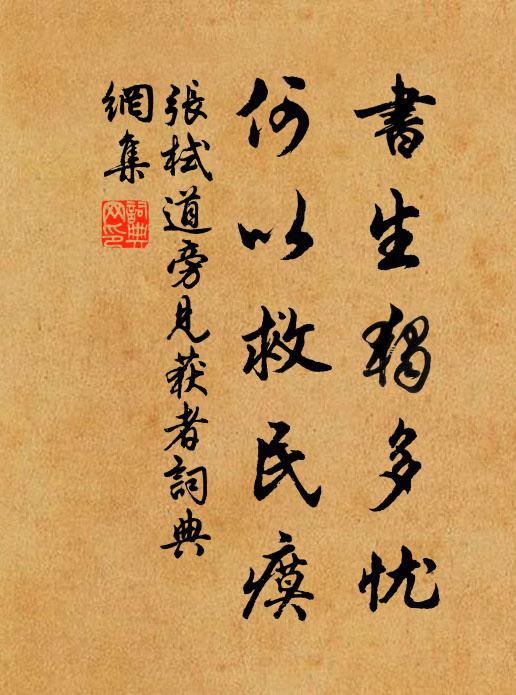 書生獨多忧
何以救民瘼
張栻道旁見获者詞典
網集
詞典
网印